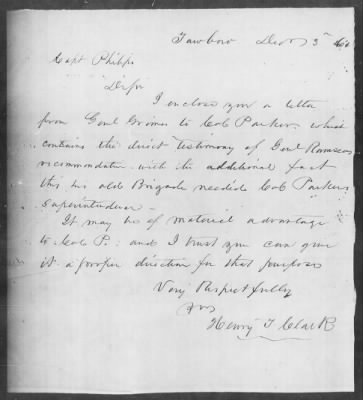 Tarboro Decr 3rd
Capt Phillips
Dr Sir
I enclose you a letter
from Genl Grimes to Col Parker, which
contains the direct testimony of Genl Ramseur
recommendation with the additional fact
this his old Brigade needed Col Parkers
superintendence.
It may be of material advantage
to Col P. and I trust you can give
it a proper direction for that purpose
Very Respectfully
Yrs
Henry T Clark